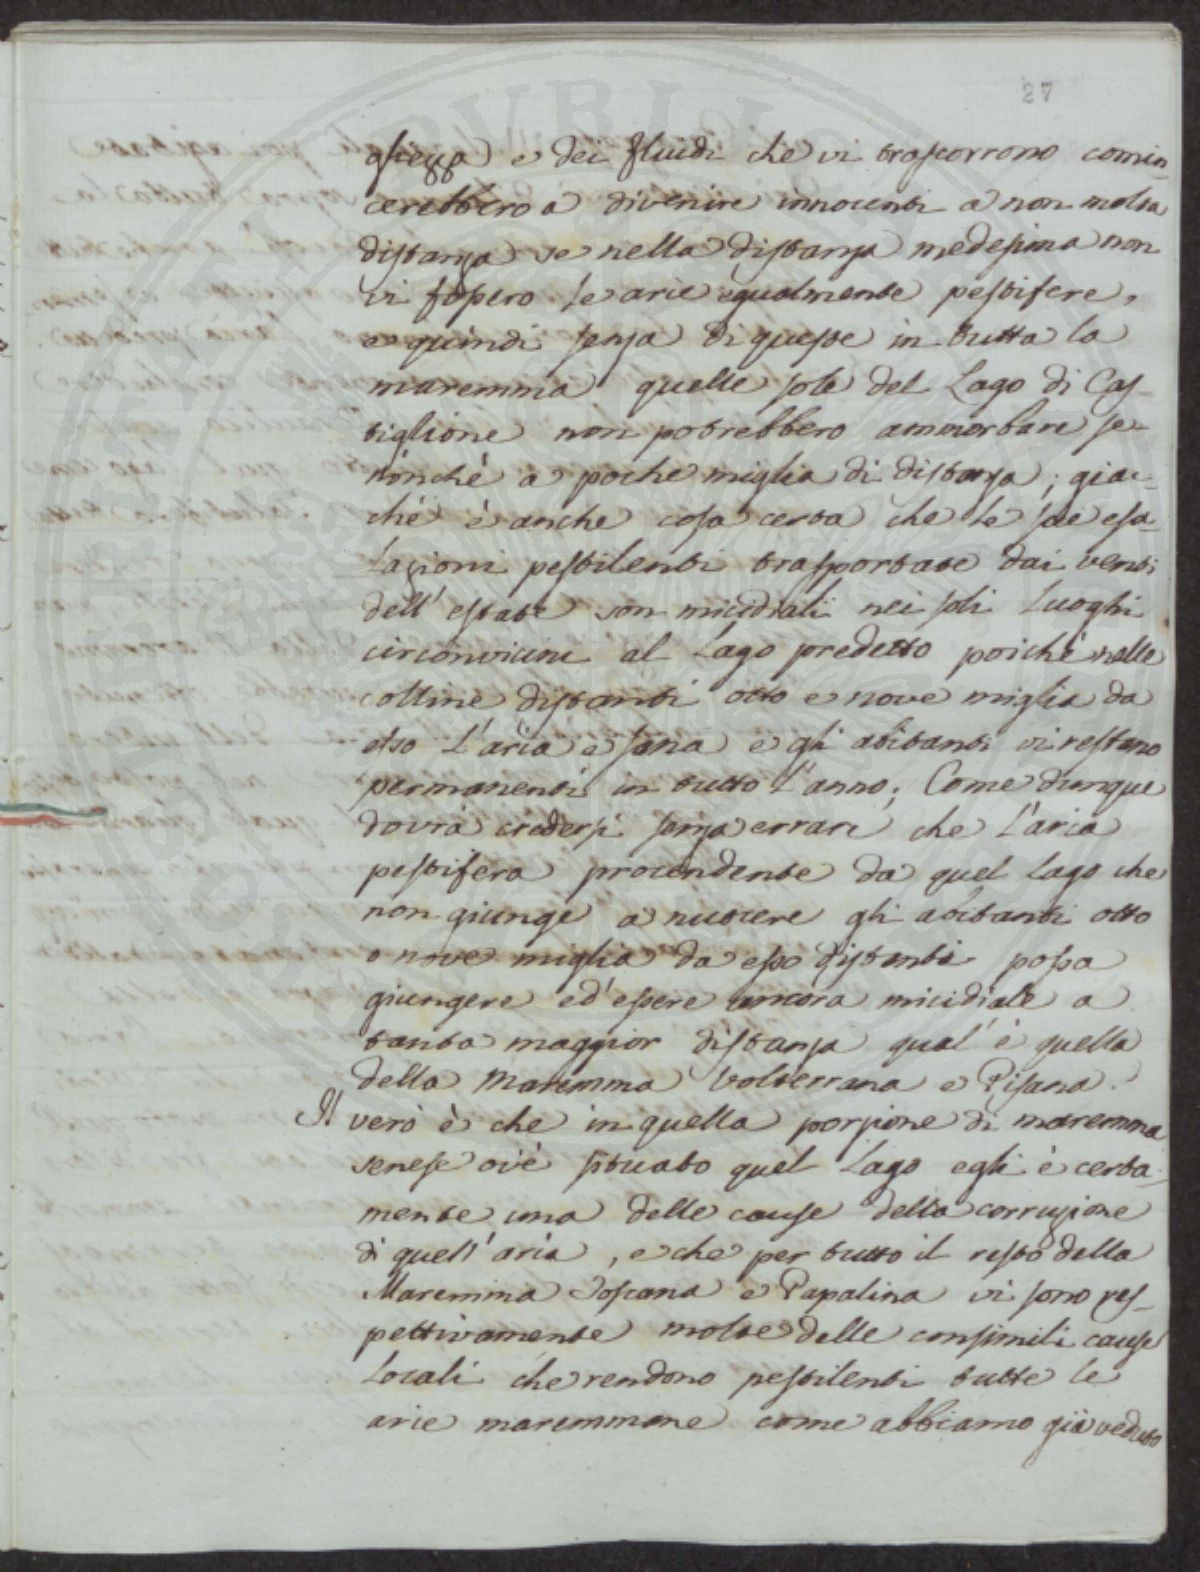 27
stessa e dei fluidi che vi trascorrono comin-
cerebbero a divenire innocenti a non molta
distanza se nella distanza medesima non
vi fossero le arie egualmente pestifere,
e quindi senza di queste in tutta la
maremma quelle sole del Lago di Cas-
tiglione non potrebbero ammorbare se-
nonchè a poche miglia di distanza; giac-
chè è anche cosa certa che le sue esa-
lazioni pestilenti trasportate dai venti
dell'estate son micidiali nei soli Luoghi
circonvicini al Lago predetto poichè nelle
colline distanti otto e nove miglia da
esso l'aria è sana e gli abitanti vi restano
permanenti in tutto l'anno; Come dunque
dovrà credersi senza errare che l'aria
pestifera procendente da quel Lago che
non giunge a nuocere gli abitanti otto
o nove miglia da esso distanti possa
giungere ed essere ancora micidiale a
tanta maggior distanza qual'è quella
della Maremma Volterrana e Pisana?
Il vero è che in quella porzione di maremma
senese ov'è situato quel Lago egli è certa-
mente una delle cause della corruzione
di quell'aria, e che per tutto il resto della
Maremma Toscana e Papalina vi sono res-
pettivamente molte delle consimili cause
Locali che rendono pestilenti tutte le
arie maremmane come abbiamo già veduto